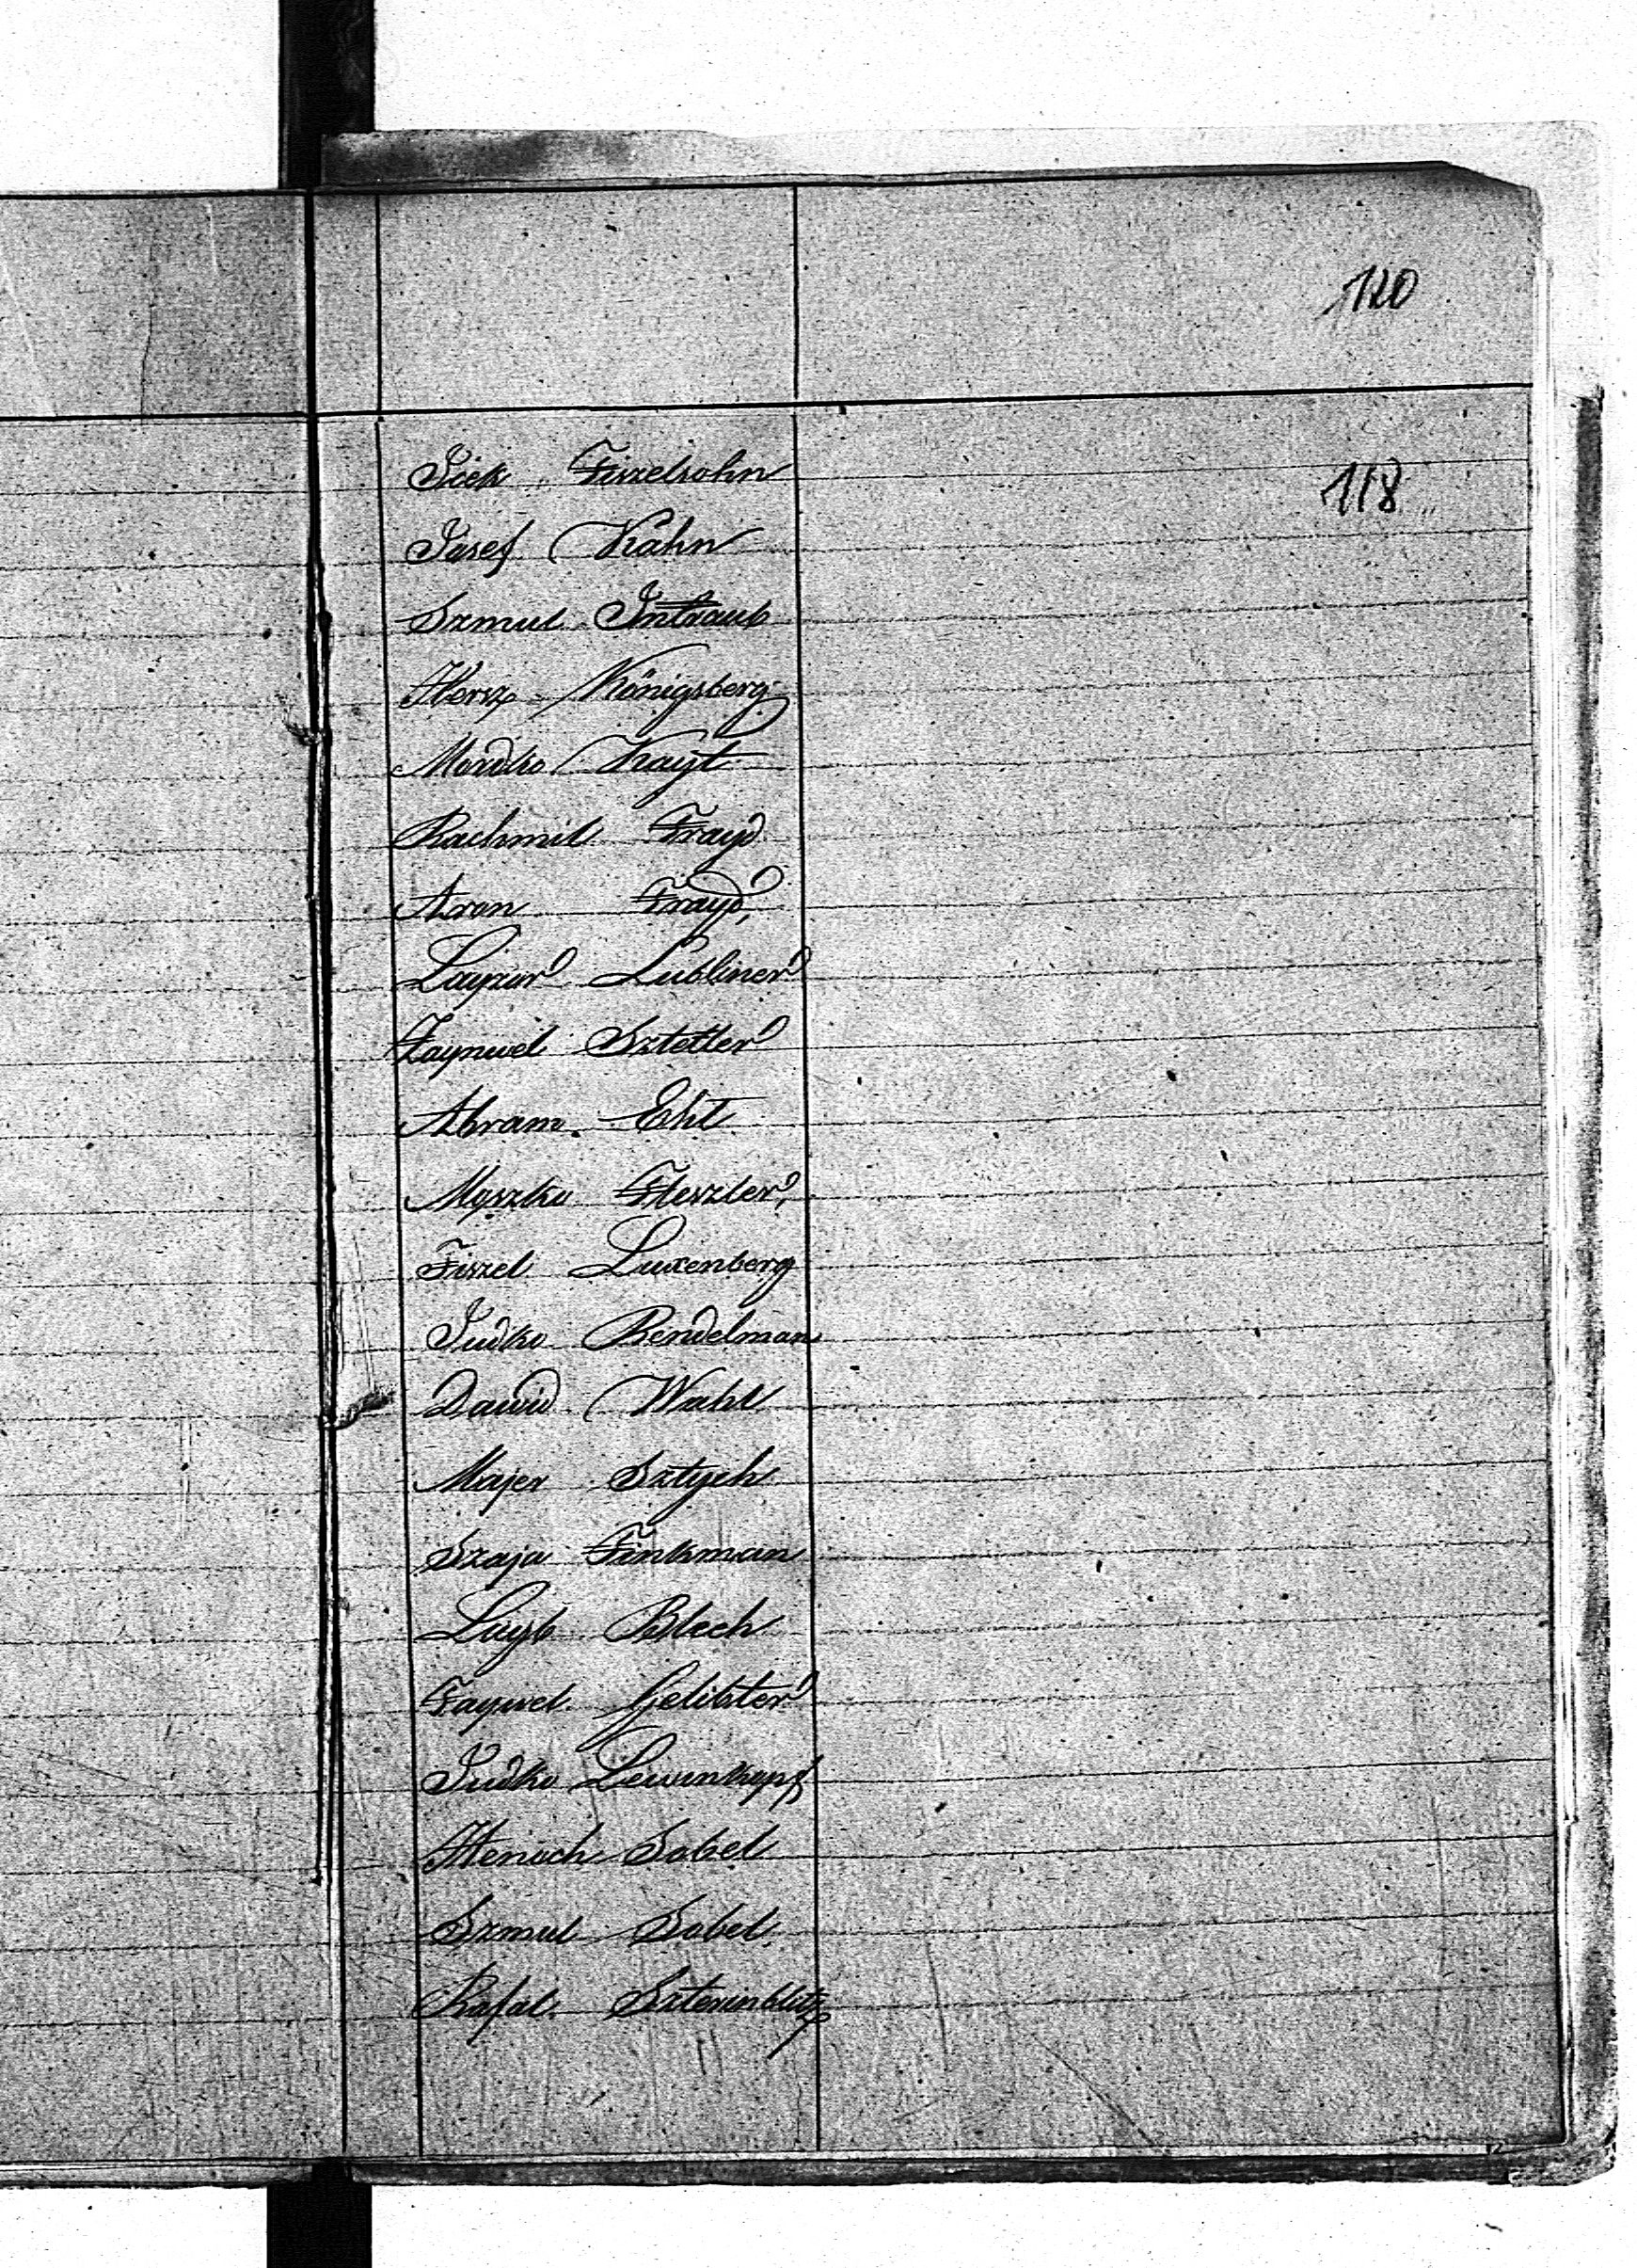 120
Icek Fiszelsohn
118
Josef Kahn
Szmul Intraub
Hersz Königsberg
Mordko Kayt
Rachmil Frayd
Aron Frayd
Layzor Lubliner
Zaynwel Sztetler
Abram Eht
Moszko Fleszler
Fiszel Luxenberg
Judko Rendelman
Dawid Wahl
Majer Sztych
Szaja Finkman
Layb Blech
Faywel Gelibter
Judko Lewenkopf
Henoch Sobel
Szmul Sobel
Rafal Szteinblitz